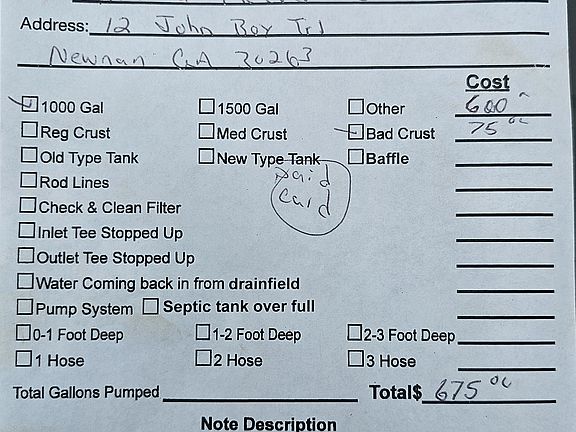 Address: 12 John Boy Trl
Newnan GA 30263
Cost
1000 Gal 1500 Gal Other 600
Reg Crust Med Crust Bad Crust 75 00
Old Type Tank New Type Tank Baffle
Rod Lines
paid
Card
Check & Clean Filter
Inlet Tee Stopped Up
Outlet Tee Stopped Up
Water Coming back in from drainfield
Pump System Septic tank over full
0-1 Foot Deep 1-2 Foot Deep 2-3 Foot Deep
1 Hose 2 Hose 3 Hose
Total Gallons Pumped Total$ 675 00
Note Description